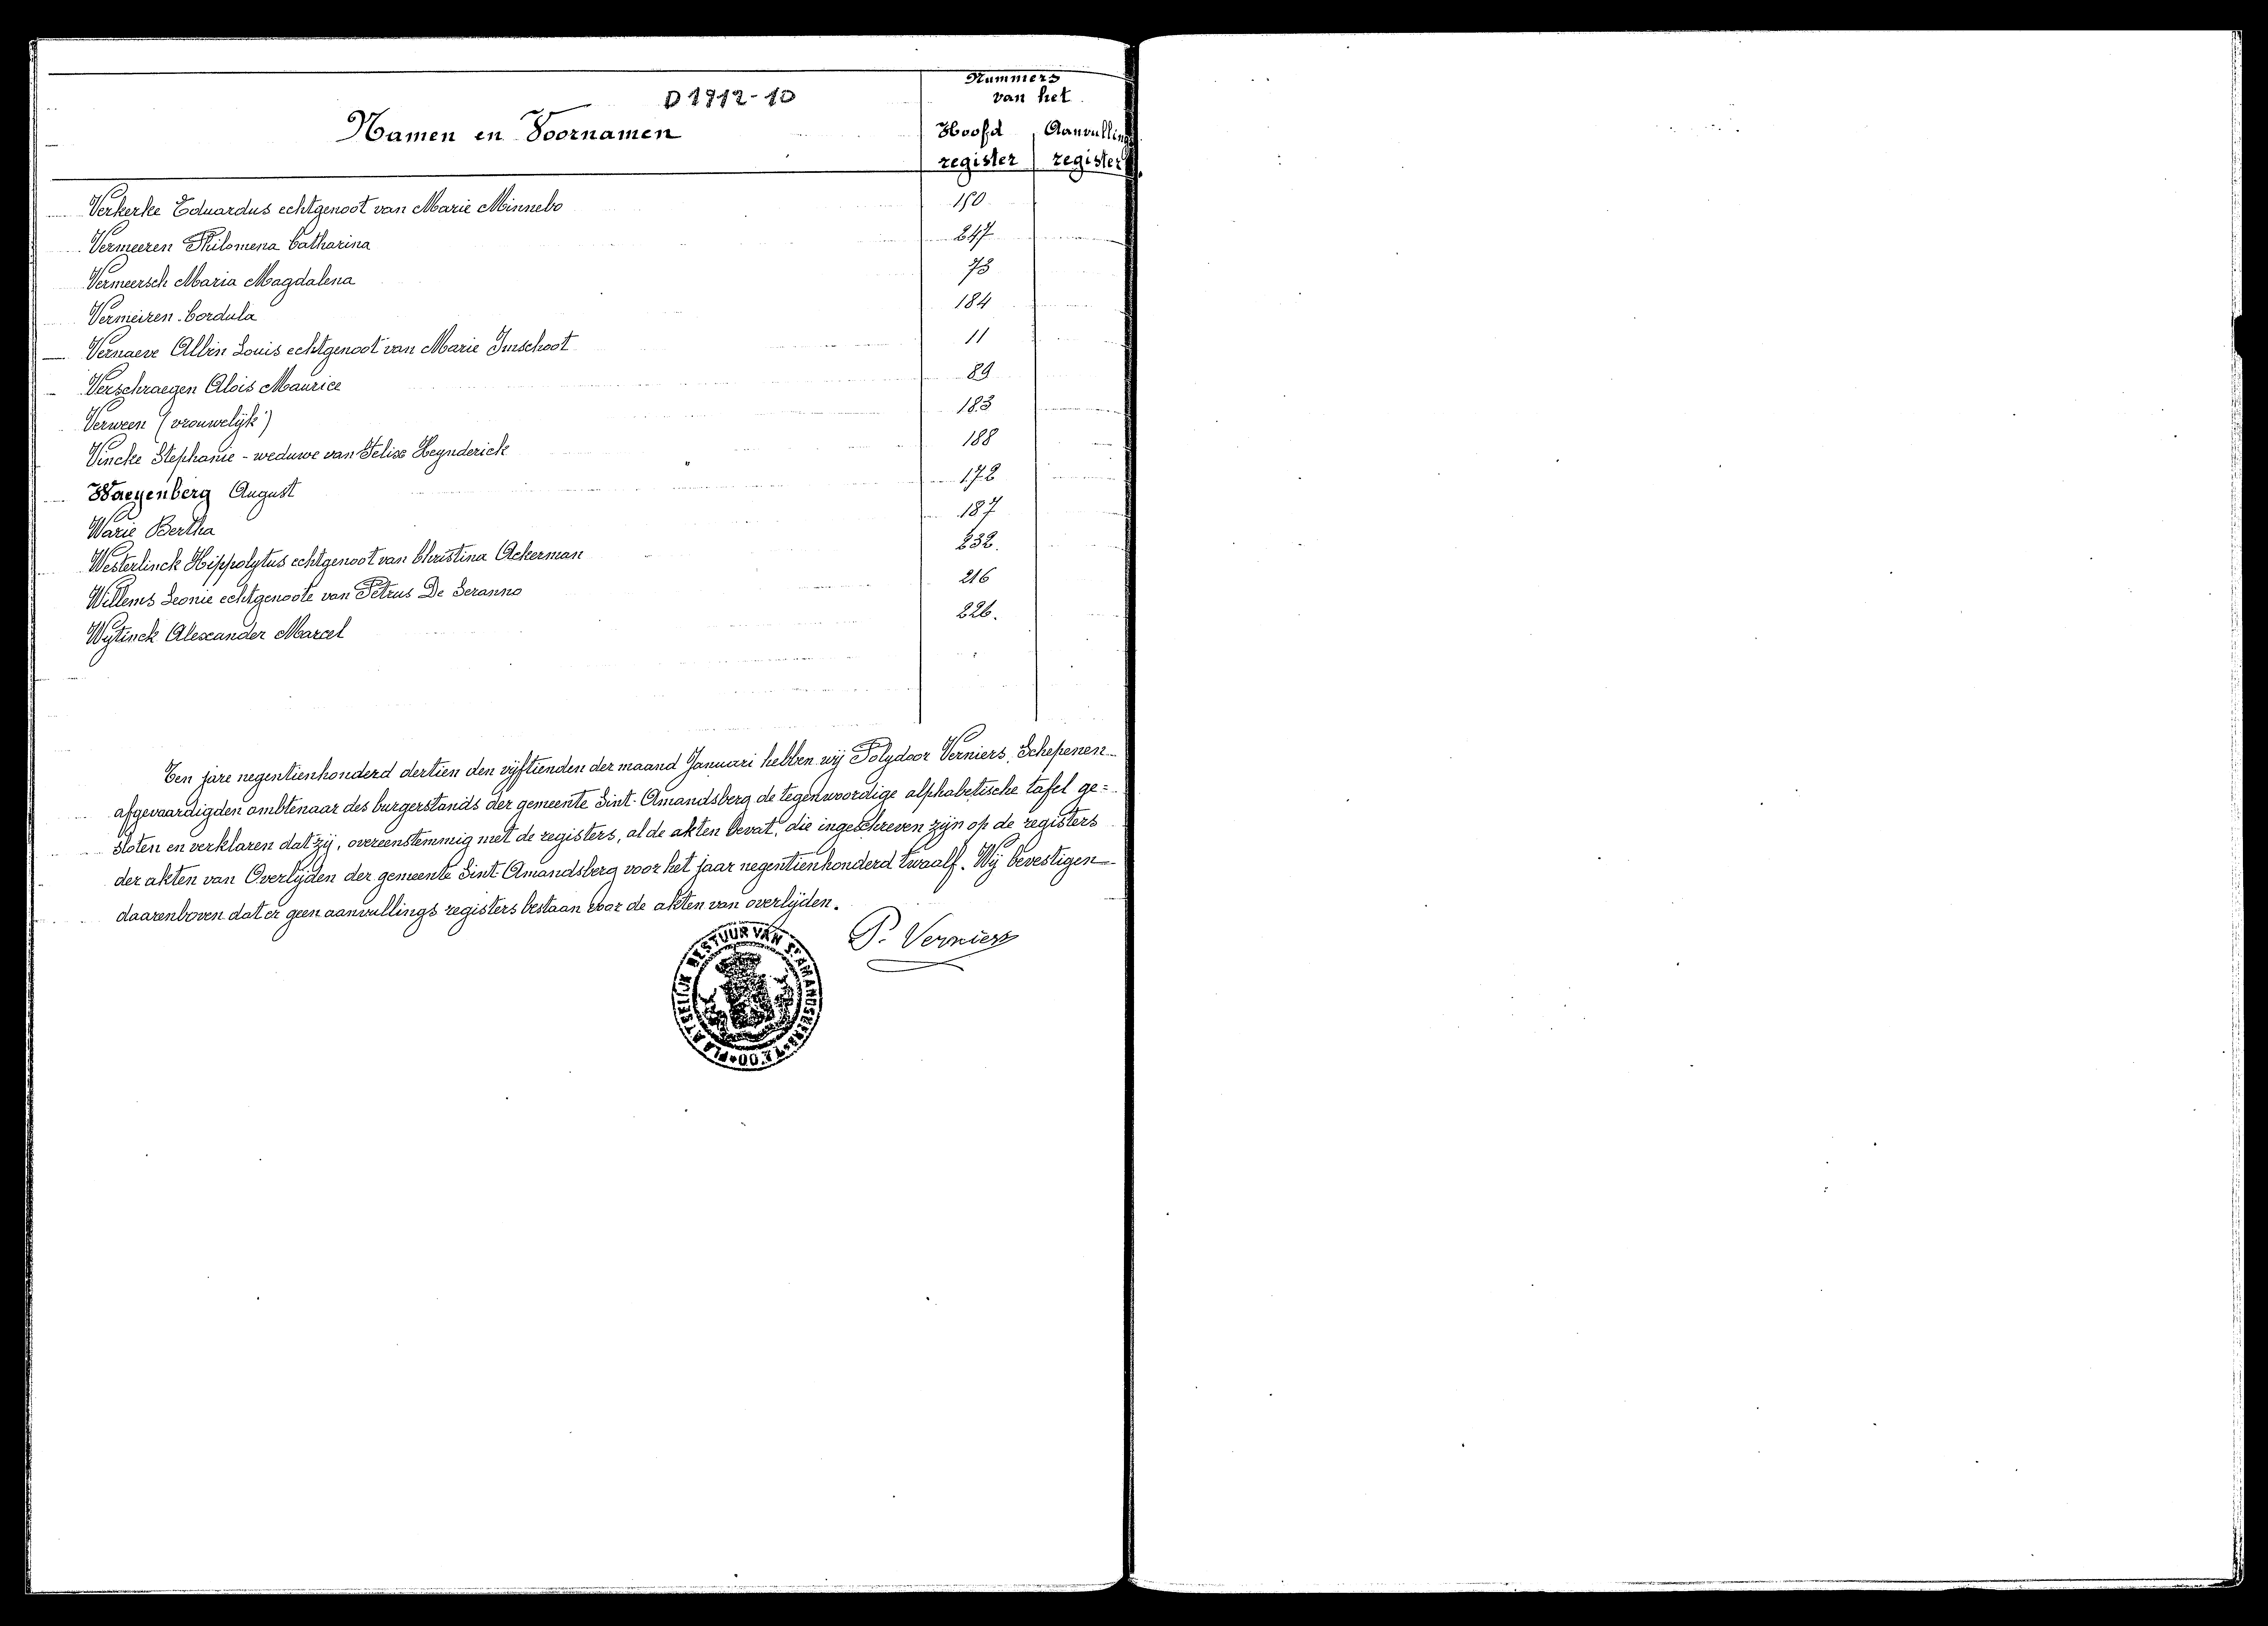 D 1912-10
Nummers
van het
Namen en Voornamen
Hoofd Aanvullings
register register
Verkerke Eduardus echtgenoot van Marie Minnebo 150
Vermeeren Philomena Catharina 247
Vermeersch Maria Magdalena 73
Vermeiren Cordula 184
Vernaeve Albin Louis echtgenoot van Marie Imschoot 11
Verschraegen Alois Maurice 89
Verween (vrouwelijk) 183
Vincke Stephanie - weduwe van Felix Heynderick 188
Waeyenberg August 172
Warie Bertha 187
Westerlinck Hippolytus echtgenoot van Christina Ackerman 232.
Willems Leonie echtgenoote van Petrus De Seranno 216
Wytinck Alexander Marcel 226.
Ten jare negentienhonderd dertien den vijftienden der maand Januari hebben wij Polydoor Verniers, Schepenen
afgevaardigden ambtenaar des burgerstands der gemeente Sint-Amandsberg de tegenwoordige alphabetische tafel ge=
sloten en verklaren dat zij, overeenstemmig met de registers, al de akten bevat, die ingeschreven zijn op de registers
der akten van Overlijden der gemeente Sint-Amandsberg voor het jaar negentienhonderd twaalf. Wij bevestigen
daarenboven dat er geen aanvullings registers bestaan voor de akten van overlijden.
P. Verniers
PLAATSELIJK BESTUUR VAN ST AMANDSBERG